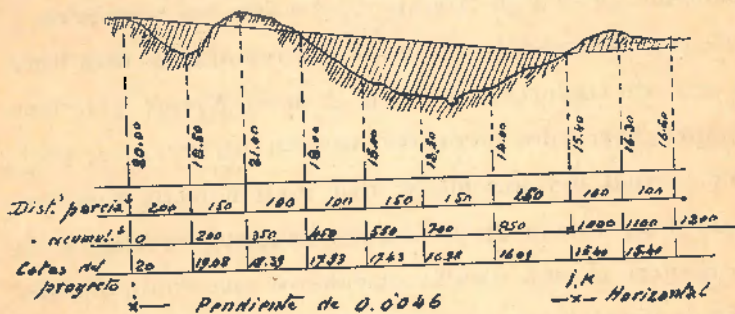 20.00 18.50 21.00 18.00 15.00 13.50 14.00 15.40 16.30 16.40
Dist.ˢ parcial.ˢ 200 150 100 100 150 150 250 100 100
" acumul.ˢ 0 200 350 450 550 700 850 1000 1100 1200
Cotas del proyecto 20 19.08 18.39 17.93 17.43 16.78 16.09 15.40 15.40
1.K
x— Pendiente de 0.0046 —x— Horizontal